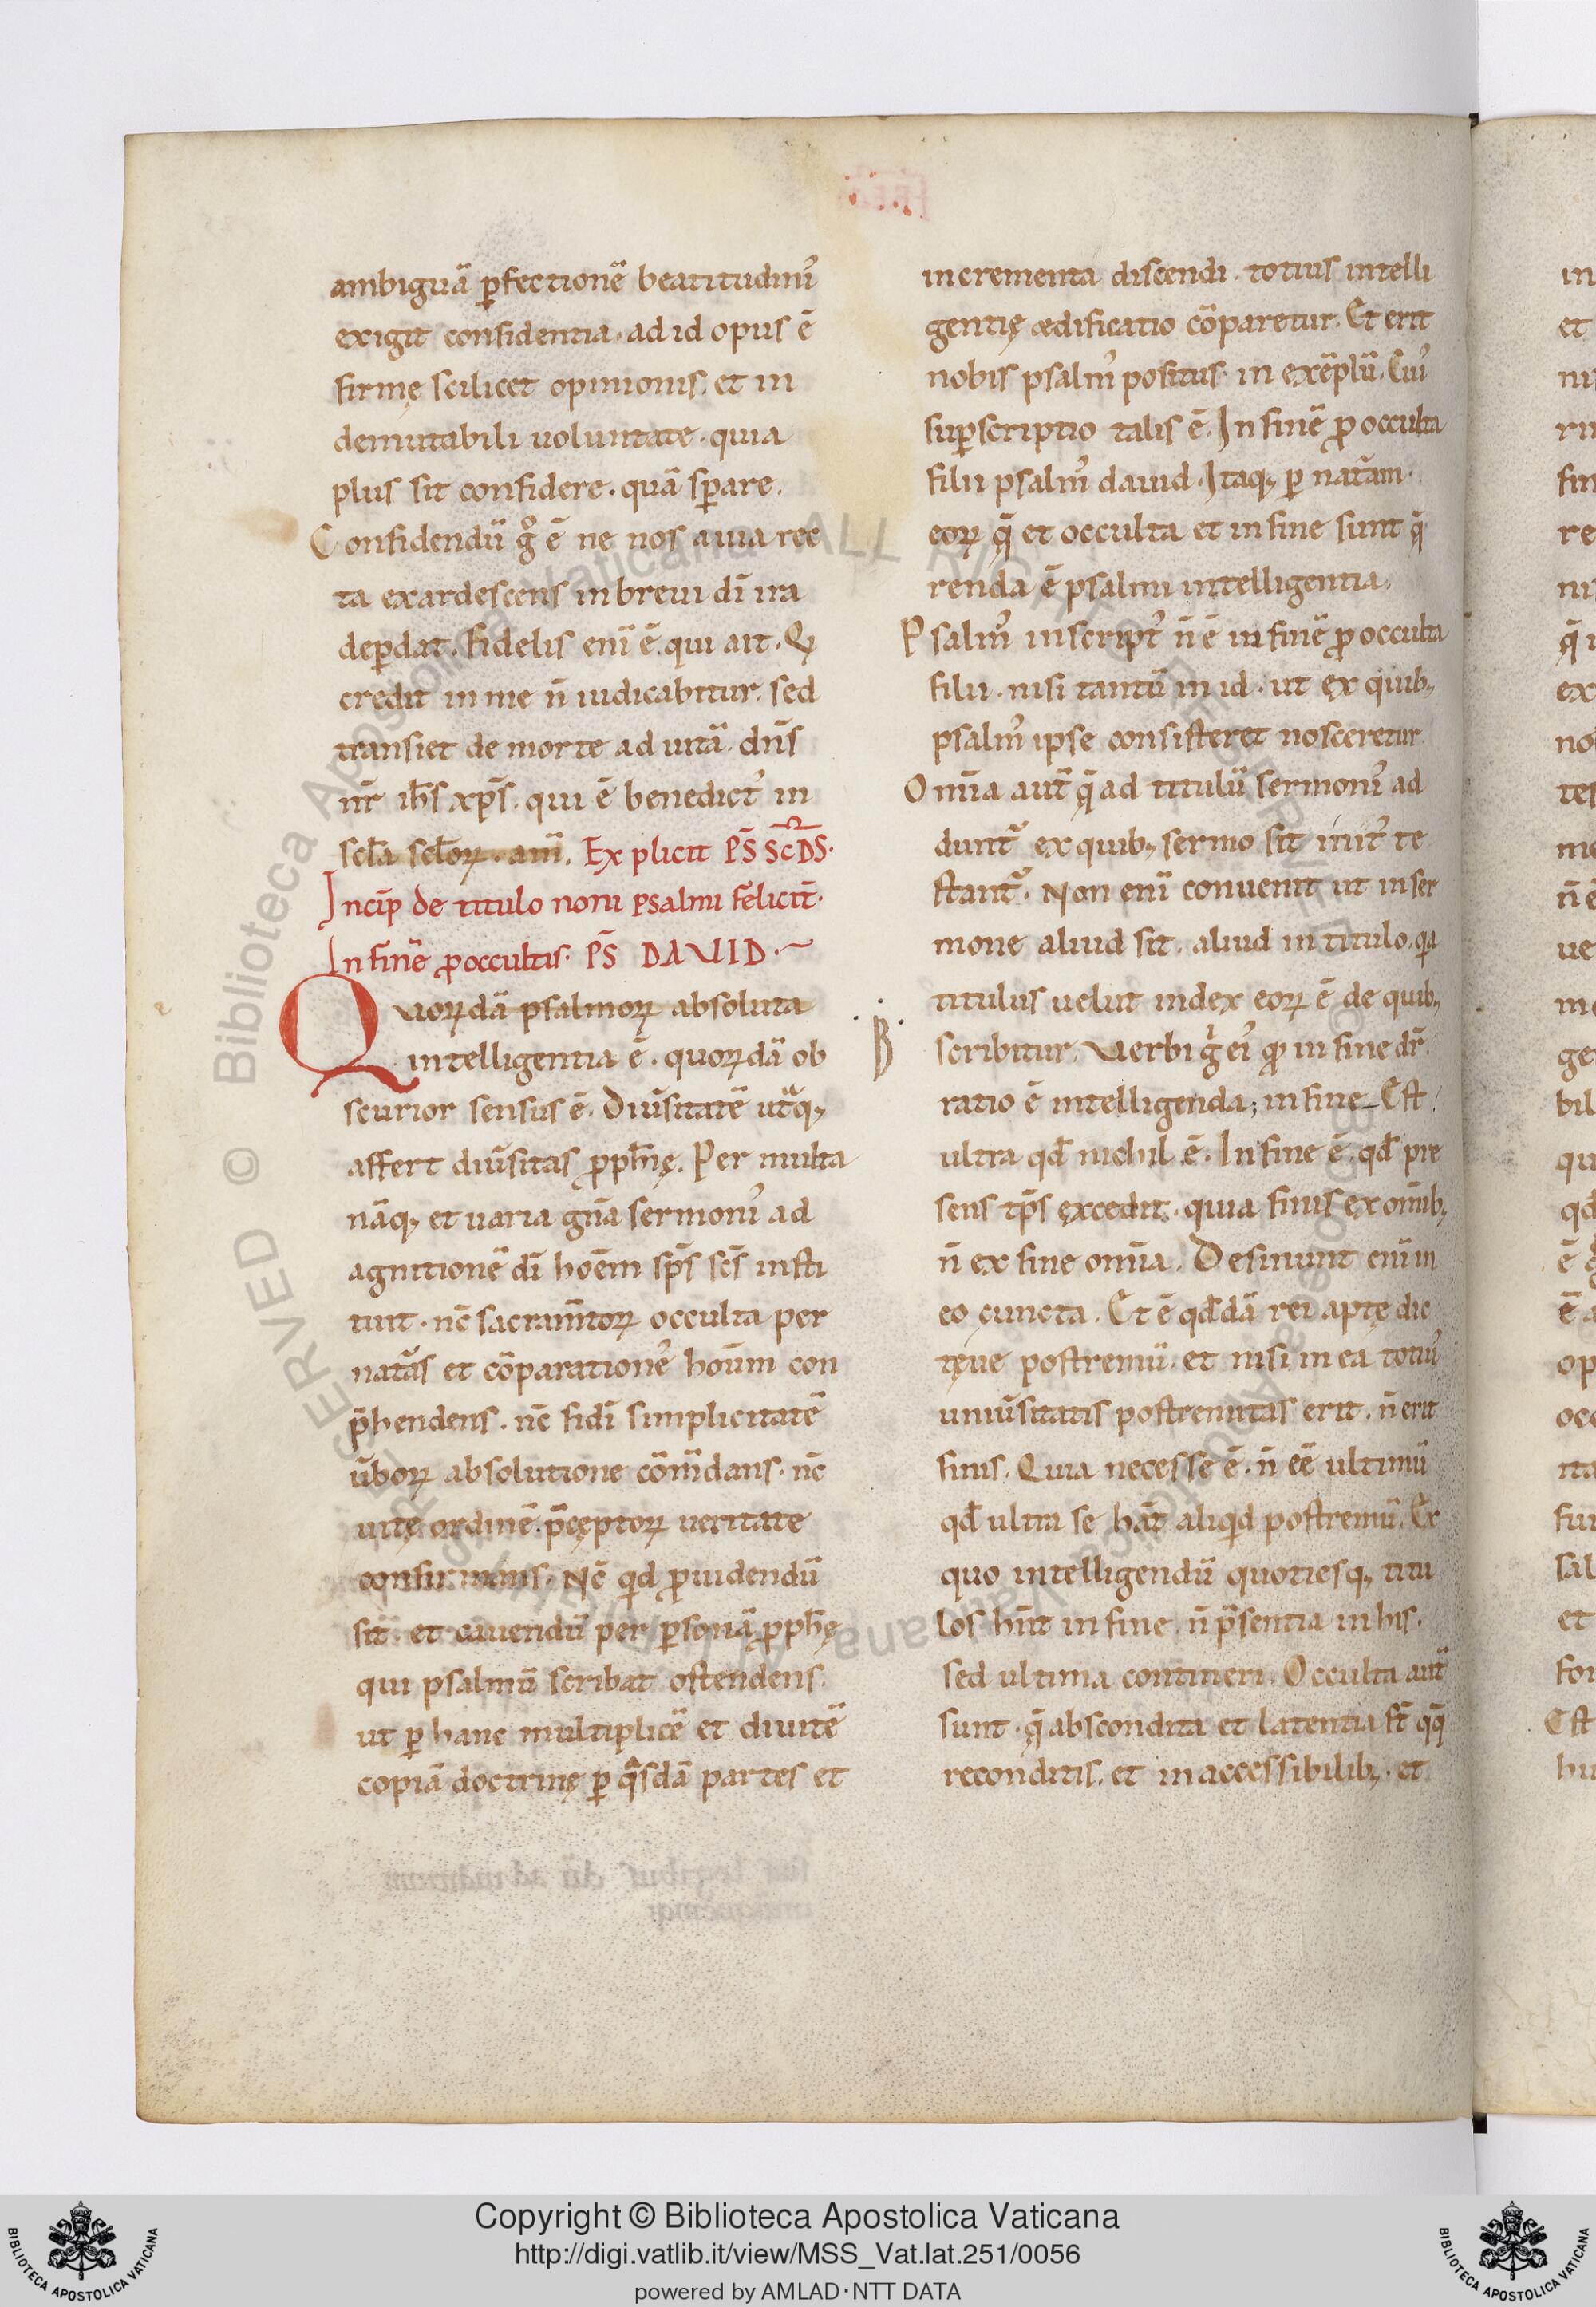 ambiguā ꝑfectionē beatitudinꝰ
exigit confidentia. ad id opus ē
firmę scilicet opinionis. et in
demutabili uoluntate. quia
plus sit confidere. quā sꝑare.
Confidendū gͦ ē ne nos a uia rec
ta exardescens in breui dī ira
deꝑdat. Fidelis enī ē. qui ait. Qͥ
credit in me n̄ iudicabitur. sed
transiet de morte ad uitā. dn̄s
nr̄ ih̄s xp̄s. qui ē benedictꝰ in
scl̄a scl̄oꝝ. am̄. Explicit PS̄ Sc̄DS.
Incip̄ de titulo noni psalmi felicit̄.
In finē ꝓ occultis. PS̄ DAVID.
Quoꝝdā psalmoꝝ absoluta
intelligentia ē. quoꝝdā ob
scurior sensus ē. Diūsitatē utᷓqꝫ
affert diūsitas ꝓph̄ię. Per multa
nāqꝫ et uaria gn̄a sermonꝰ ad
agnitionē dī hoēm sp̄s sc̄s insti
tuit. nc̄ sacram̄toꝝ occulta per
natᷓas et cōparationeꝰ hoūm con
p̄hendens. nc̄ fidī simplicitatē
ūboꝝ absolutione cōm̄dans. nc̄
uitę ordinē p̄cęptoꝝ ueritate
confirmans. Nc̄ qͥd ꝓuidendū
sit. et cauendū per ꝑsonā ꝓph̄ę
qui psalmū scribat ostendens.
ut ꝑ hanc multiplicē et diuitē
copiā doctrinę ꝑ qᷓsdā partes et
incrementa discendi. totius intelli
gentię ædificatio cōparetur. Et erit
nobis psalmꝰ positus in exēplū. Cuiꝰ
suꝑscriptio talis ē. In finē ꝓ occulta
filii psalmꝰ dauid. Itaqꝫ ꝑ natᷓam
eoꝝ q̄ et occulta et in fine sunt q̄
renda ē psalmi intelligentia.
Psalmꝰ inscriptꝰ n̄ ē in finē ꝓ occulta
filii. nisi tantū in id. ut ex quibꝫ
psalmꝰ ipse consisteret nosceretur.
Omīa aut̄ q̄ ad titulū sermonꝰ ad
dunt᷑ ex quibꝫ sermo sit initꝰ te
stant᷑. Non enī conuenit ut in ser
mone aliud sit. aliud in titulo. qͣ
titulus uelut index eoꝝ ē de quibꝫ
scribitur. Verbi gͬ eiꝰ qͦ in fine dr̄.
ratio ē intelligenda; in fine. Est
ultra qd̄ nichil ē. In fine ē. qd̄ pre
sens tp̄s excedit. quia finis ex omībꝫ
n̄ ex fine omīa. Desinunt enī in
eo cuncta. Et ē qd̄dā rei aptę dic
tęue postremū. et nisi in ea totiuꝰ
uniūsitatis postremitas erit. n̄ erit
finis. Quia necesse ē. n̄ eē ultimū
qd̄ ultra se hāt aliqͥd postremū. Ex
quo intelligendū quotiesqꝫ titu
los hn̄t in fine. n̄ p̄sentia in his.
sed ultima contineri. Occulta aut̄
sunt. q̄ abscondita et latentia st̄ qͥq̄
reconditis. et inaccessibilibꝫ. et
Copyright © Biblioteca Apostolica Vaticana
http://digi.vatlib.it/view/MSS_Vat.lat.251/0056
powered by AMLAD·NTT DATA